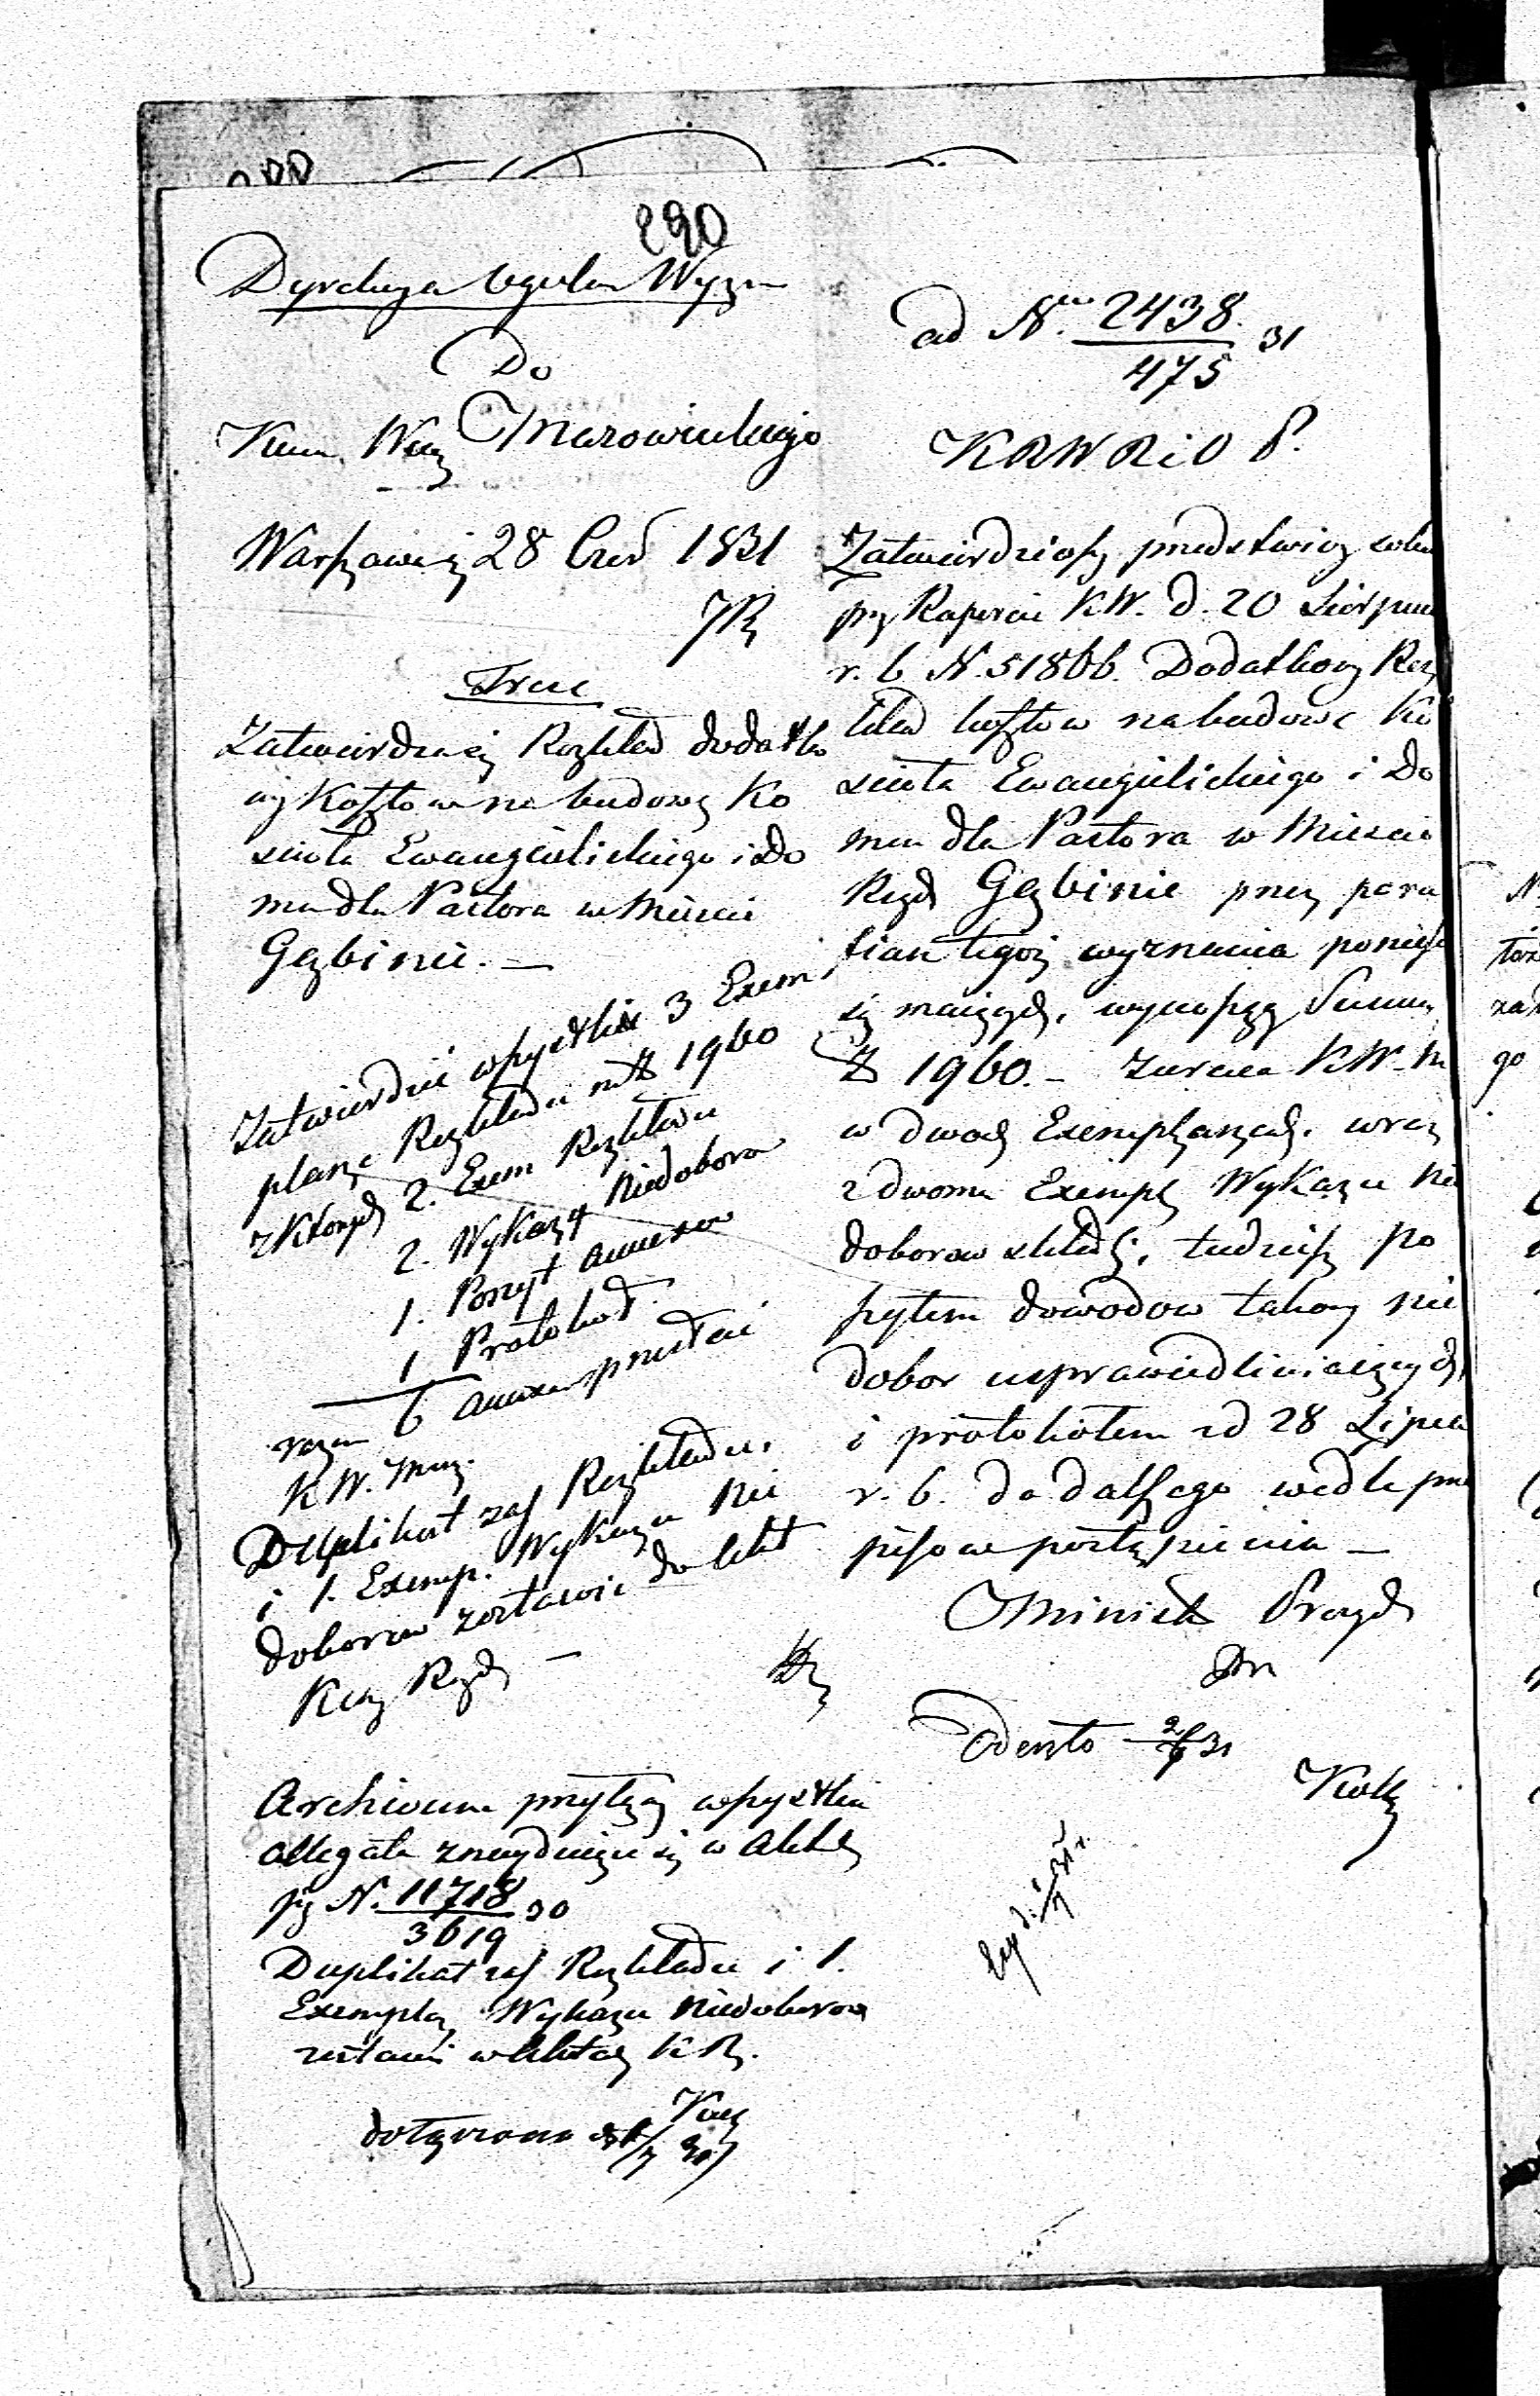 290
Dyrekcya Ogolna Wyzn
Do
Kom. Woy Mazowieckiego
Warszawie 28 Czer 1831
Treść
Zatwierdzaiąc Rozkład dodatko
wy Kosztow na budowę Ko
scioła Ewangielickiego i Do
mu dla Pastora w Mieście
Gąbinie. —
Zatwierdzić wszystkie 3 Exem
plarze Rozkładu na Zł 1960
z których 2. Exem Rozkładu
2. Wykazy Niedoborow
1. Poszyt annexow
1 Protokoł
razem 6 annexa przesłać
K W. Maz.
Duplikat zaś Rozkładu,
i 1. Exemp. Wykazu Nie
doborow zostawić do Akt
Kom Rząd —
Archiwum przyłączy wszystkie
allegata znayduiące się w Aktach
przy N. 11718/3619 30
Duplikat zaś Rozkładu i 1.
Exemplarz Wykazu Niedoborow
zostawi w Aktach K R.
dołączono
ad Nru 2438/475 31
K R W R i O P.
Zatwierdziwszy przedstawiony sobie
przy Raporcie KW. d. 20 Sierpnia
r. b. N. 51866. Dodatkowy Roz
kład kosztow na budowę Ko
scioła Ewangielickiego i Do
mu dla Pastora w Mieście
Rząd Gąbinie przez para
fian tegoż wyznania ponieść
się maiących, wynoszący Summę
Zł 1960. — zwraca KW. M
w dwoch Exemplarzach, wraz
z dwoma Exempl Wykazu Nie
doborow składki, tudzież po
szytem dowodow takowy nie
dobor usprawiedliwiaiących,
i protokołem z d 28 Lipca
r. b. do dalszego wedle prze
pisow postąpienia —
Minist Prezyd